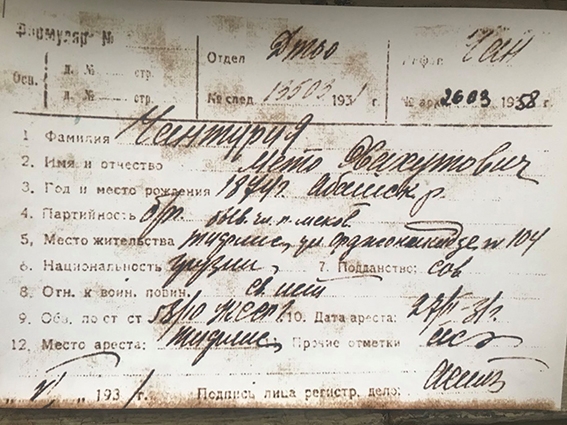 Формуляр №
Осн. д. № стр.
д. № стр.
Отдел
№ след. 13503 1931 г.
Чан
№ арх. 2603 1958 г.
1 Фамилия Чантурия
2. Имя и отчество Мето Вахутович
3. Год и место рождения 1874 г. Абашск р.
4. Партийность б/п. быв. чл. п. меков.
5, Место жительства Тифлис, ул. Орджоникидзе, № 104
6. Национальность грузин 7. Подданство: сов
8. Отн. к воин. повин.
9. Обв. по ст ст 58/10 10. Дата ареста:
12. Место ареста: Тифлис, Прочие отметки
193 г Подпись лица регистр. дело: